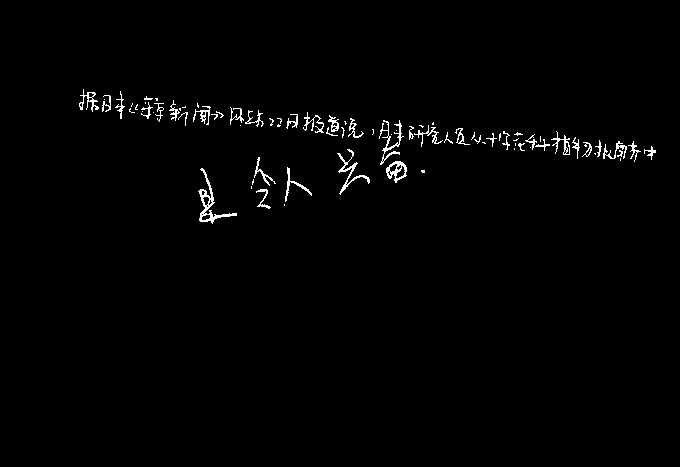 据日本《东京新闻》网站22日报道说，日本研究人员从十字花科植物拟南芥中
是令人兴奋.